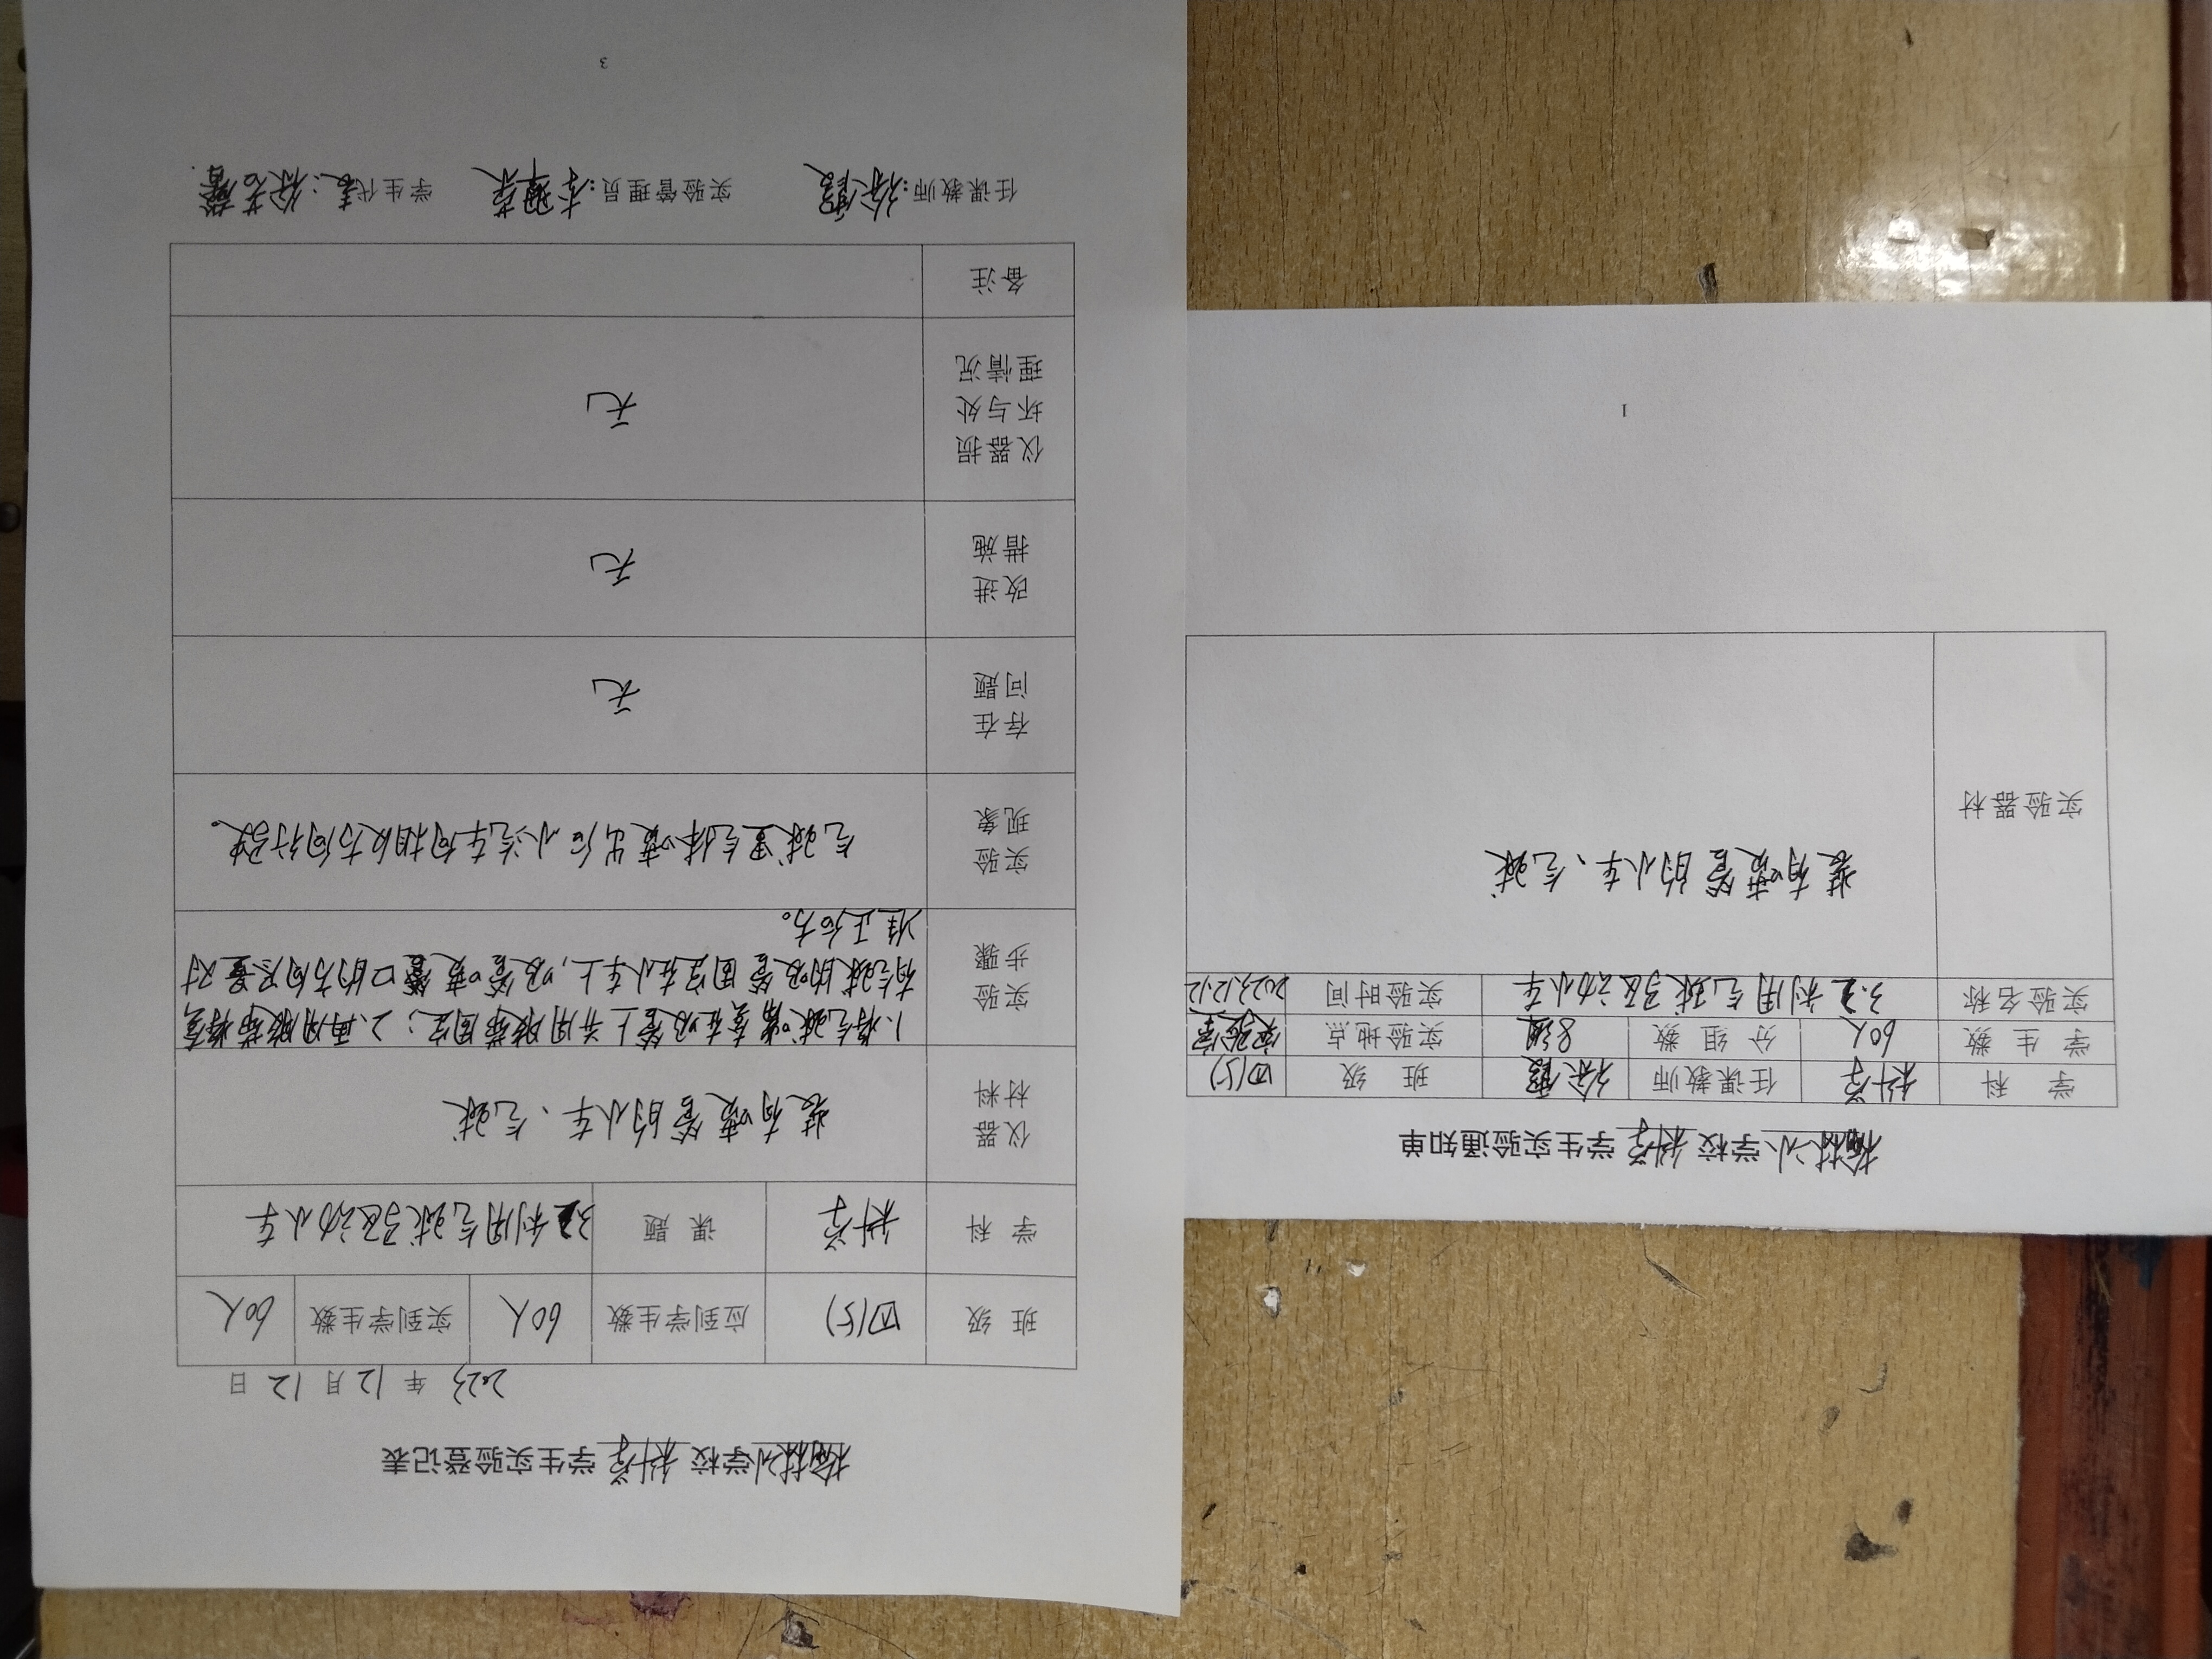 榆林小学校 科学 学生实验通知单
学 科 科学 任课教师 徐霞 班 级 四(5)
学 生 数 60人 分 组 数 8组 实验地点 实验室
实验名称 3.2利用气球驱动小车 实验时间 2023.12.12
实验器材 装有喷管的小车、气球
1
榆林小学校 科学 学生实验登记表
2023 年 12 月 12 日
班 级 四(5) 应到学生数 60人 实到学生数 60人
学 科 科学 课 题 3.2利用气球驱动小车
仪器
材料
装有喷管的小车、气球
实验
步骤
1.将气球嘴套在吸管上并用胶带固定;2.再用胶带将套
有气球的吸管固定在小车上,吸管喷管口的方向尽量对
准正后方。
实验
现象
气球里气体喷出后小汽车向相反方向行驶。
存在
问题
无
改进
措施
无
仪器损
坏与处
理情况
无
备注
任课教师:徐霞 实验管理员: 学生代表:
3